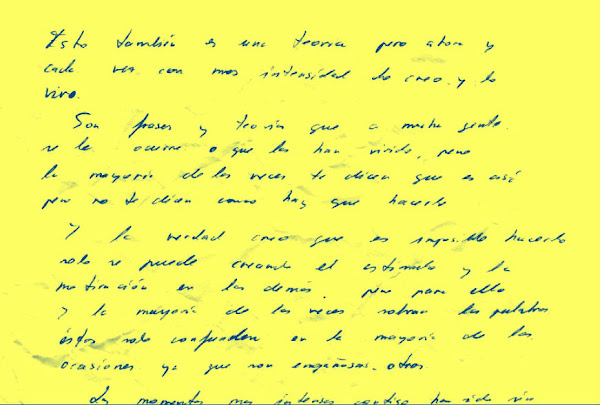 Esto también es una teoria pero ahora y
cada vez con mas intensidad lo creo y lo
vivo.
Son frases y teorias que a mucha gente
se le ocurre o que las han vivido, pero
la mayoria de las veces te dicen que es asi
pero no te dicen como hay que hacerlo
Y la verdad creo que es imposible hacerlo
solo se puede creando el estimulo y la
motivación en los demas. pero para ello
Y la mayoria de las veces sobran las palabras
éstas solo confunden en la mayoria de las
ocasiones ya que son engañosas. otros
Los momentos mas intensos contigo han sido sin